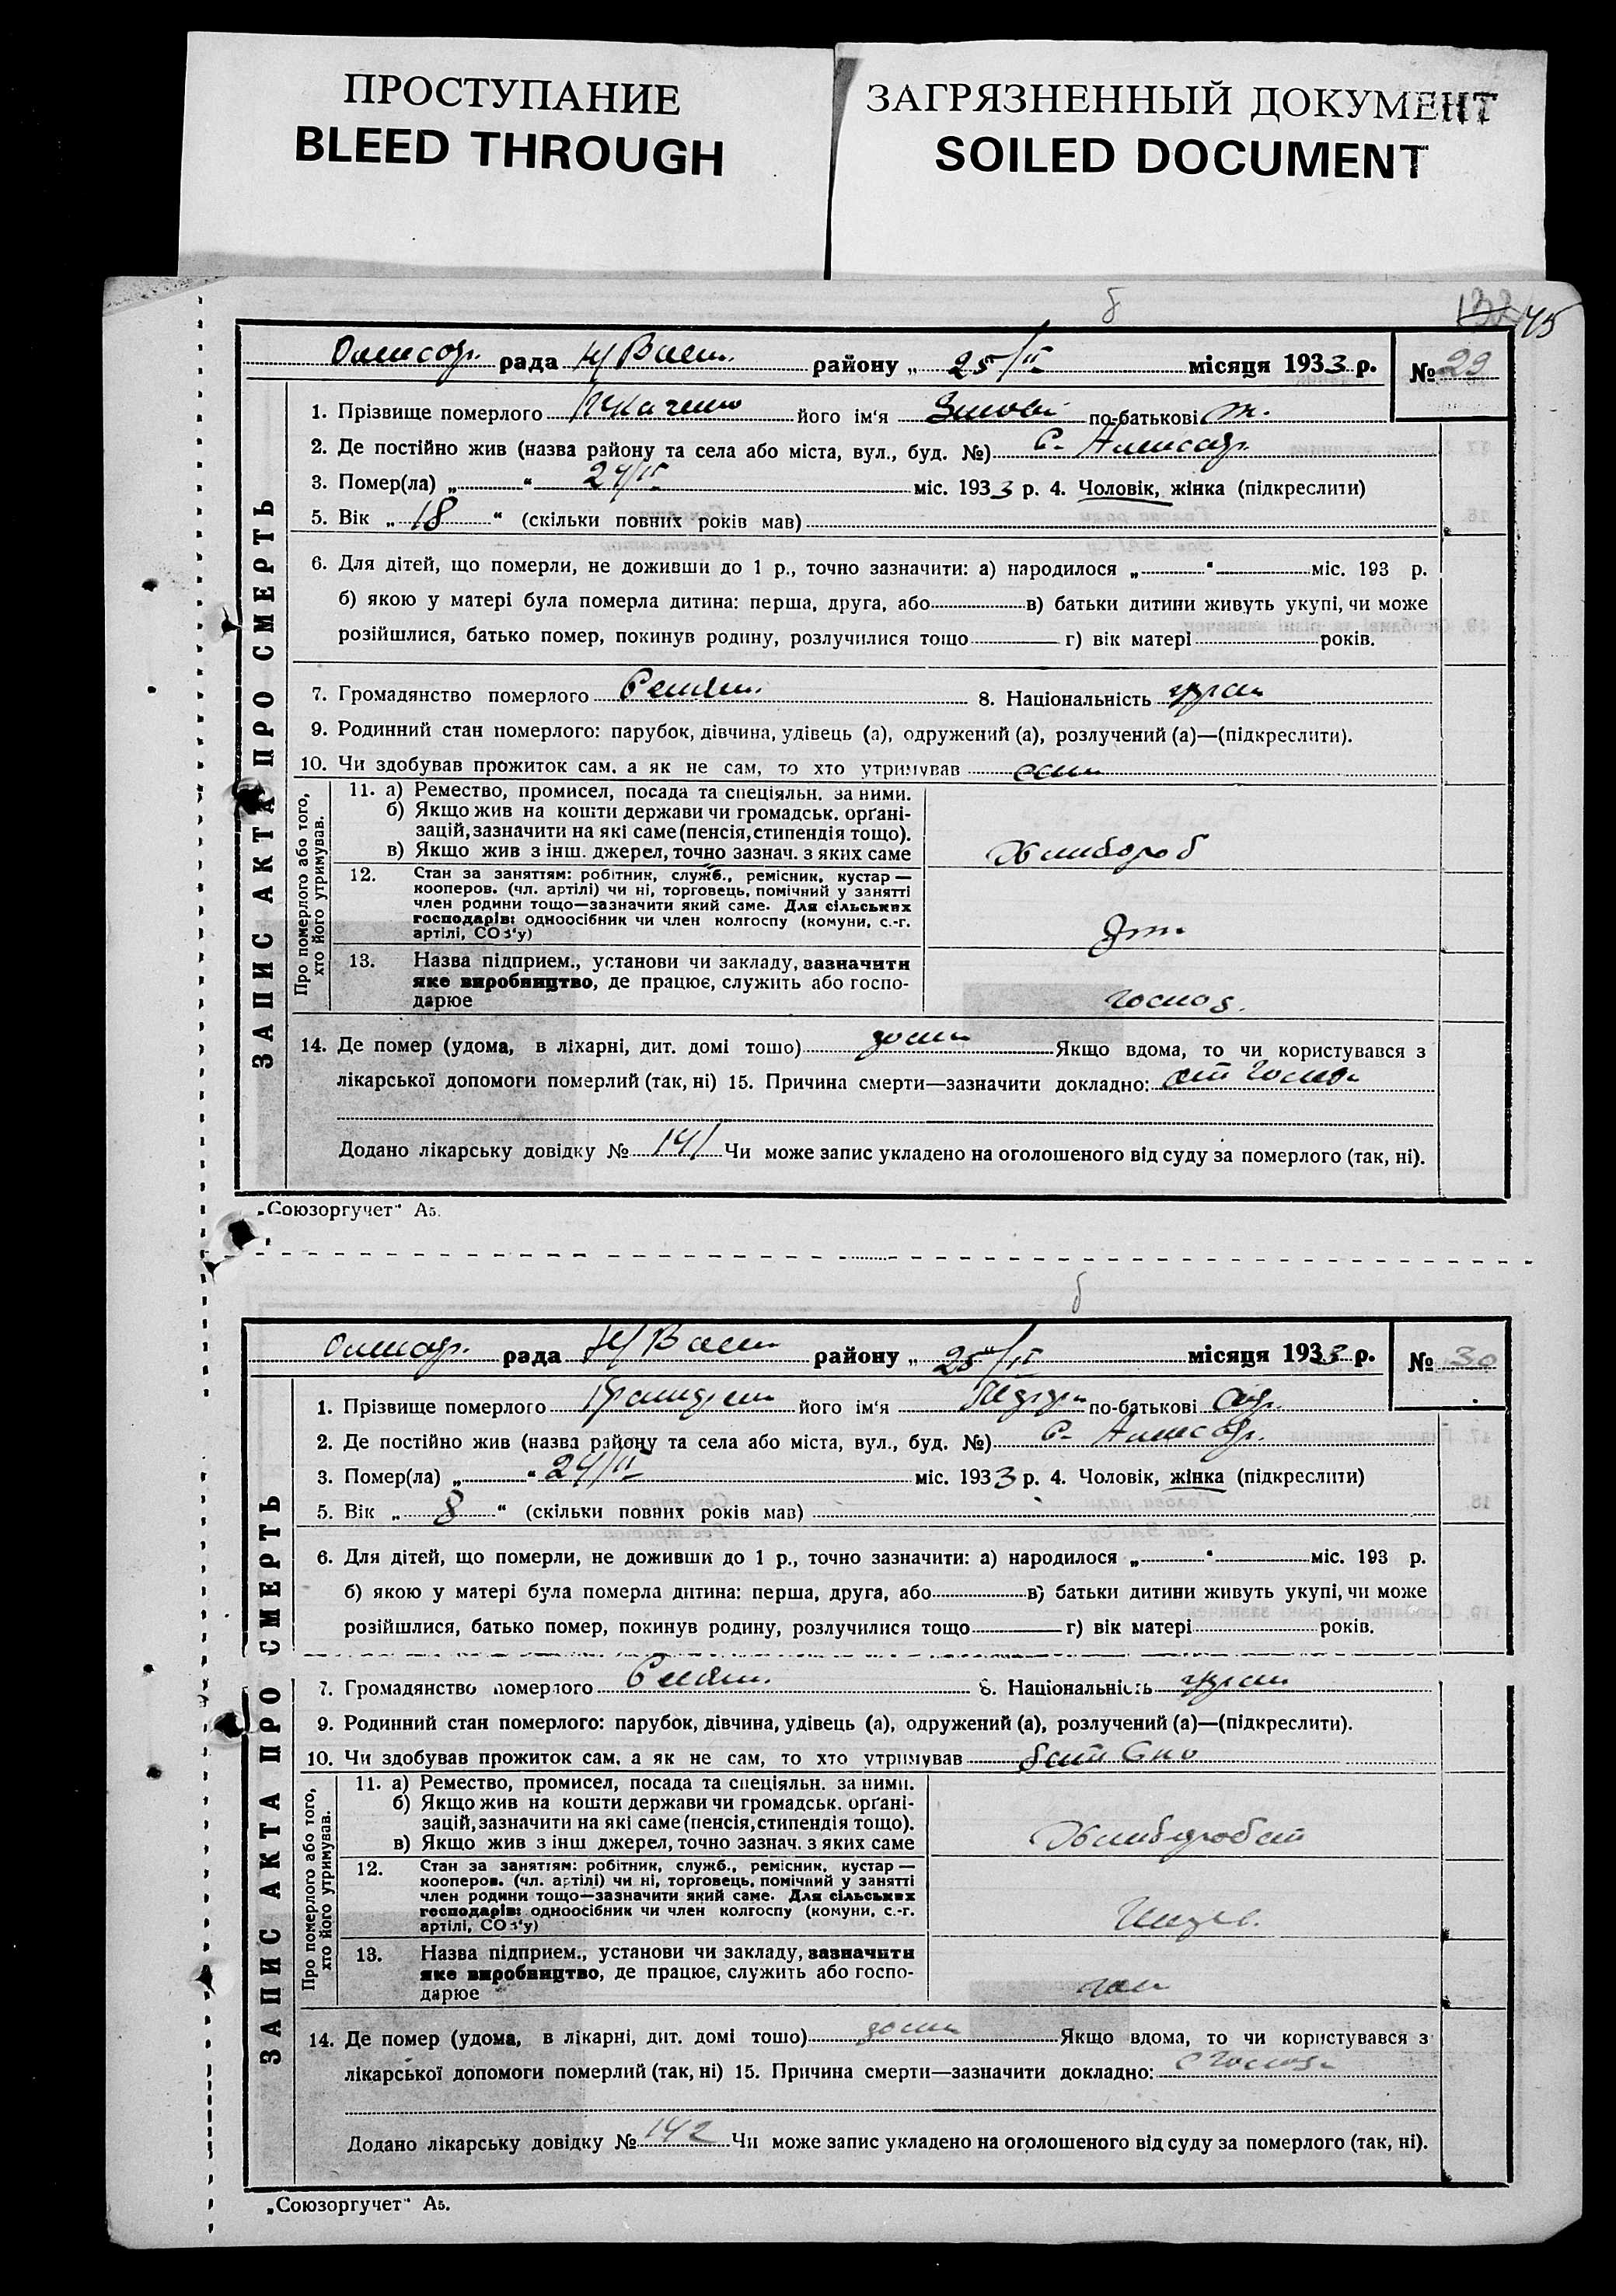 ПРОСТУПАНИЕ
BLEED THROUGH
ЗАГРЯЗНЕННЫЙ ДОКУМЕНТ
SOILED DOCUMENT
б
132 45
рада Н/Васи. району „ 25/II місяця 1933 р. № 29
1. Прізвище померлого Ткаченко його ім‘я по-батькові
2. Де постійно жив (назва району та села або міста, вул., буд. №) С.
3. Помер(ла) „ “ 24/II міс. 1933 р. 4. Чоловік, жінка (підкреслити)
5. Вік „ 18 “ (скільки повних років мав)
6. Для дітей, що померли, не доживши до 1 р., точно зазначити: а) народилося „ “ міс. 193 р.
б) якою у матері була померла дитина: перша, друга, або в) батьки дитини живуть укупі, чи може
розійшлися, батько помер, покинув родину, розлучилися тощо г) вік матері років.
7. Громадянство померлого Селян. 8. Національність
9. Родинний стан померлого: парубок, дівчина, удівець (а), одружений (а), розлучений (а)—(підкреслити).
10. Чи здобував прожиток сам, а як не сам, то хто утримував сам
ЗАПИС АКТА ПРО СМЕРТЬ
Про померлого або того, хто його утримував.
11. а) Ремество, промисел, посада та спеціяльн. за ними.
б) Якщо жив на кошти держави чи громадськ. орґані-
зацій, зазначити на які саме (пенсія, стипендія тощо).
в) Якщо жив з інш. джерел, точно зазнач. з яких саме
Хлибороб
12. Стан за заняттям: робітник, служб., ремісник, кустар —
кооперов. (чл. артілі) чи ні, торговець, помічний у занятті
член родини тощо—зазначити який саме. Для сільських
господарів: одноосібник чи член колгоспу (комуни, с.-г.
артілі, СОЗ‘у)
13. Назва підприєм., установи чи закладу, зазначити
яке виробництво, де працює, служить або госпо-
дарює
14. Де помер (удома, в лікарні, дит. домі тощо) дома Якщо вдома, то чи користувався з
лікарської допомоги померлий (так, ні) 15. Причина смерти—зазначити докладно:
Додано лікарську довідку № 141 Чи може запис укладено на оголошеного від суду за померлого (так, ні).
„Союзоргучет“ А5.
б
рада Н/Васи району „ 25/II місяця 1933 р. № 30
1. Прізвище померлого його ім‘я по-батькові
2. Де постійно жив (назва району та села або міста, вул., буд. №) С.
3. Помер(ла) „ “ 24/II міс. 1933 р. 4. Чоловік, жінка (підкреслити)
5. Вік „ 8 “ (скільки повних років мав)
6. Для дітей, що померли, не доживши до 1 р., точно зазначити: а) народилося „ “ міс. 193 р.
б) якою у матері була померла дитина: перша, друга, або в) батьки дитини живуть укупі, чи може
розійшлися, батько помер, покинув родину, розлучилися тощо г) вік матері років.
7. Громадянство померлого Селян. 8. Національність
9. Родинний стан померлого: парубок, дівчина, удівець (а), одружений (а), розлучений (а)—(підкреслити).
10. Чи здобував прожиток сам, а як не сам, то хто утримував
ЗАПИС АКТА ПРО СМЕРТЬ
Про померлого або того, хто його утримував.
11. а) Ремество, промисел, посада та спеціяльн. за ними.
б) Якщо жив на кошти держави чи громадськ. орґані-
зацій, зазначити на які саме (пенсія, стипендія тощо).
в) Якщо жив з інш джерел, точно зазнач. з яких саме
12. Стан за заняттям: робітник, служб., ремісник, кустар —
кооперов. (чл. артілі) чи ні, торговець, помічний у занятті
член родини тощо—зазначити який саме. Для сільських
господарів: одноосібник чи член колгоспу (комуни, с.-г.
артілі, СОЗ‘у)
13. Назва підприєм., установи чи закладу, зазначити
яке виробництво, де працює, служить або госпо-
дарює
14. Де помер (удома, в лікарні, дит. домі тощо) дома Якщо вдома, то чи користувався з
лікарської допомоги померлий (так, ні) 15. Причина смерти—зазначити докладно:
Додано лікарську довідку № 142 Чи може запис укладено на оголошеного від суду за померлого (так, ні).
„Союзоргучет“ А5.